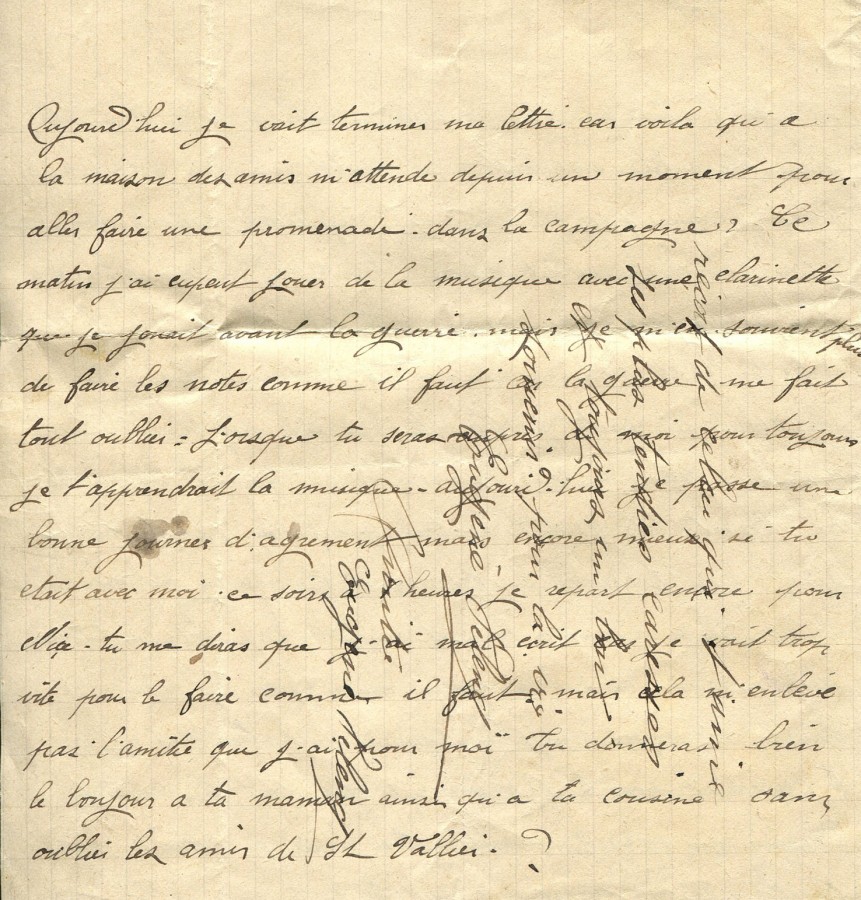 Aujourd'hui je vait terminer ma lettre. car voila qu'a
la maison des amis m'attende depuis un moment pour
aller faire une promenade. dans la campagne? Ce
matin j'ai jouer de la musique avec une clarinette
que je jouait avant la guerre. mais je m'en souvient plus
de faire les notes comme il faut car la guerre me fait
tout oublier = Lorsque tu seras aupres de moi pour toujours
je t'apprendrait la musique - aujourd'hui je passe une
bonne journer d'agrement mais encore mieux si tu
etait avec moi. ce soirs a heures je repart encore pour
Nice - tu me diras que j-ai mal ecrit car je vait trop
vite pour le faire comme il faut. mais cela m'enlevé
pas l'amitie que j-ai pour moï tu donneras bien
le bonjour a ta maman ainsi qu'a ta cousine sans
oublier les amis de St Vallier.
reçoit de celui qui t'aime
ses plus tendres caresses
et toujours un bon
souvenir pour la vie
Eugene